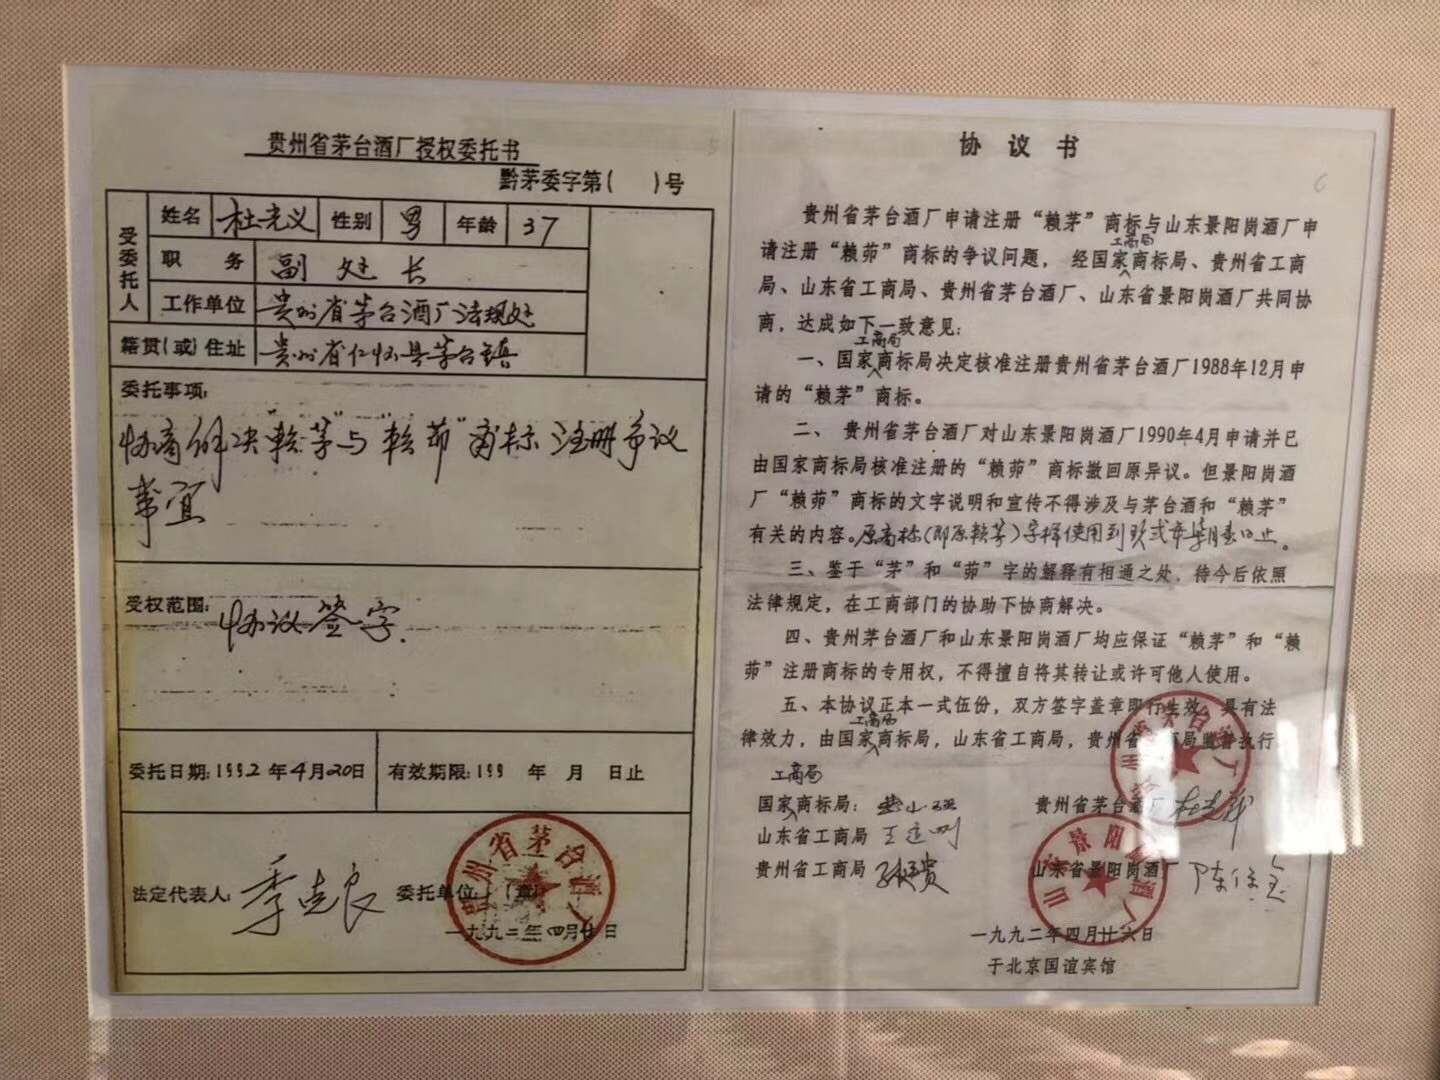 贵州省茅台酒厂授权委托书
黔茅委字第( )号
受委托人
姓名 杜光义 性别 男 年龄 37
职务 副处长
工作单位 贵州省茅台酒厂法规处
籍贯(或)住址 贵州省仁怀县茅台镇
委托事项:
协商解决“赖茅”与“赖茆”商标注册争议
事宜
受权范围: 协议签字.
委托日期:1992年4月20日 有效期限:199 年 月 日止
法定代表人: 季克良 委托单位: (章)
贵州省茅台酒厂
一九九二年四月廿日
协议书
6
贵州省茅台酒厂申请注册“赖茅”商标与山东景阳岗酒厂申
工商局
请注册“赖茆”商标的争议问题，经国家商标局、贵州省工商
局、山东省工商局、贵州省茅台酒厂、山东省景阳岗酒厂共同协
商，达成如下一致意见:
工商局
一、国家商标局决定核准注册贵州省茅台酒厂1988年12月申
请的“赖茅”商标。
二、贵州省茅台酒厂对山东景阳岗酒厂1990年4月申请并已
由国家商标局核准注册的“赖茆”商标撤回原异议。但景阳岗酒
厂“赖茆”商标的文字说明和宣传不得涉及与茅台酒和“赖茅”
有关的内容。原商标(即原赖茅)字样使用到
三、鉴于“茅”和“茆”字的解释有相通之处，待今后依照
法律规定，在工商部门的协助下协商解决。
四、贵州茅台酒厂和山东景阳岗酒厂均应保证“赖茅”和“赖
茆”注册商标的专用权，不得擅自将其转让或许可他人使用。
五、本协议正本一式伍份，双方签字盖章即行生效，具有法
工商局
律效力，由国家商标局，山东省工商局，贵州省工商局监督执行
工商局
国家商标局: 贵州省茅台酒厂 杜光义
山东省工商局
贵州省工商局 山东省景阳岗酒厂
贵州省茅台酒厂
山东景阳岗酒厂
一九九二年四月廿六日
于北京国谊宾馆